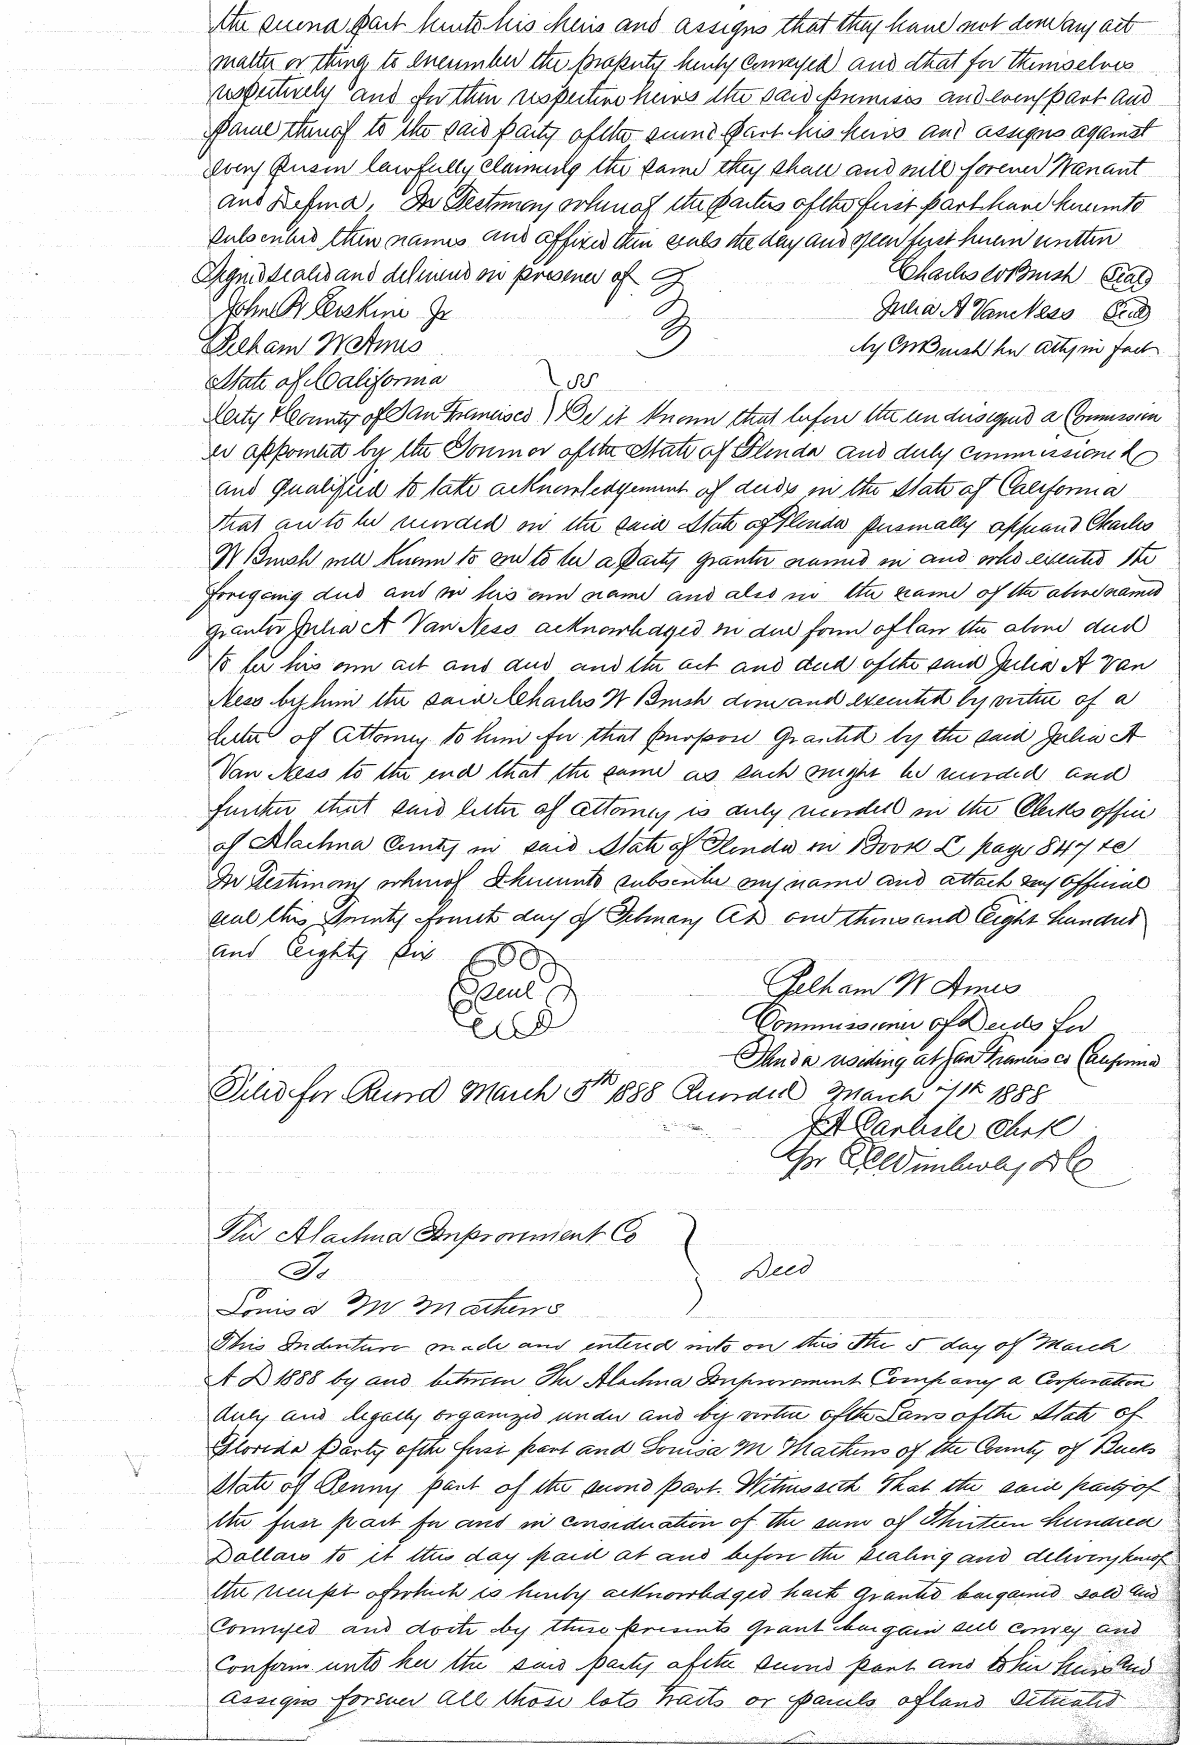 the second part hereto his heirs and assigns that they have not done any act
matter or thing to encumber the property hereby conveyed and that for themselves
respectively and for their respective heirs the said premises and every part and
parcel thereof to the said party of the second part his heirs and assigns against
every person lawfully claiming the same they shall and will forever Warrant
and Defend. In Testimony whereof the parties of the first part have hereunto
subscribed their names and affixed their seals the day and year first herein written
Signed sealed and delivered in presence of
Charles W Brush (Seal)
John R Erskine Jr
Julia A Van Ness (Seal)
Pelham W Ames
by CW Brush her atty in fact
State of California
SS
City & County of San Francisco ) Be it known that before the undersigned a Commission
er appointed by the Governor of the State of Florida and duly commissioned
and qualified to take acknowledgement of deeds in the State of California
that are to be recorded in the said State of Florida personally appeared Charles
W Brush well known to me to be a party grantor named in and who executed the
foregoing deed and in his own name and also in the name of the above named
grantor Julia A Van Ness acknowledged in due form of law the above deed
to be his own act and deed and the act and deed of the said Julia A Van
Ness by him the said Charles W Brush done and executed by virtue of a
letter of Attorney to him for that purpose granted by the said Julia A
Van Ness to the end that the same as such might be recorded and
further that said letter of attorney is duly recorded in the Clerks office
of Alachua County in said State of Florida in Book L page 847 &c
In Testimony whereof I hereunto subscribe my name and attach my official
seal this twenty fourth day of February AD one thousand Eight hundred
and Eighty six
Seal
Pelham W Ames
Commissioner of Deeds for
Florida residing at San Francisco California
Filed for Record March 5th 1888 Recorded March 7th 1888
JA Carlisle Clerk
Per Wimberly DC
The Alachua Improvement Co
To
Deed
Louisa M Mathews
This Indenture made and entered into on this the 5 day of March
A D 1888 by and between The Alachua Improvement Company a Corporation
duly and legally organized under and by virtue of the Laws of the State of
Florida Party of the first part and Louisa M Mathews of the County of Bucks
State of Penny part of the second part. Witnesseth That the said party of
the first part for and in consideration of the sum of Thirteen hundred
Dollars to it this day paid at and before the sealing and delivery hereof
the receipt of which is hereby acknowledged hath granted bargained sold and
Conveyed and doth by these presents grant bargain sell convey and
Confirm unto her the said party of the second part and to her heirs and
assigns forever all those lots tracts or parcels of land situated